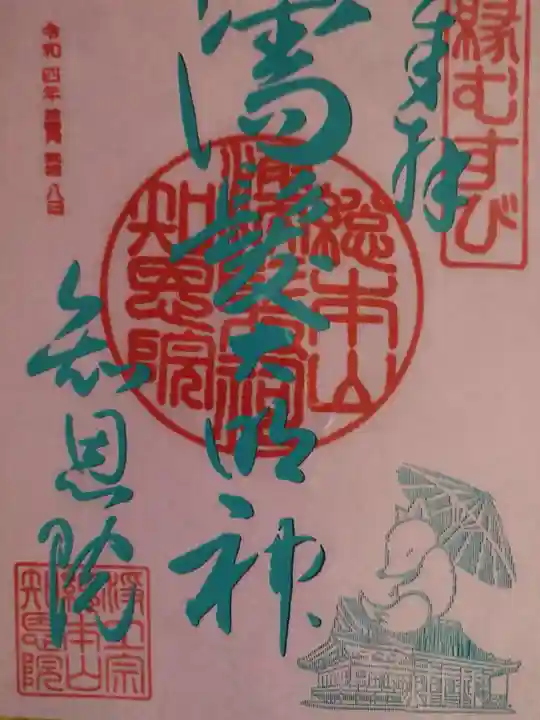 縁むすび
奉拝
濡髪大明神
総本山
知恩院
令和四年
八日
知恩院
浄土宗
総本山
知恩院